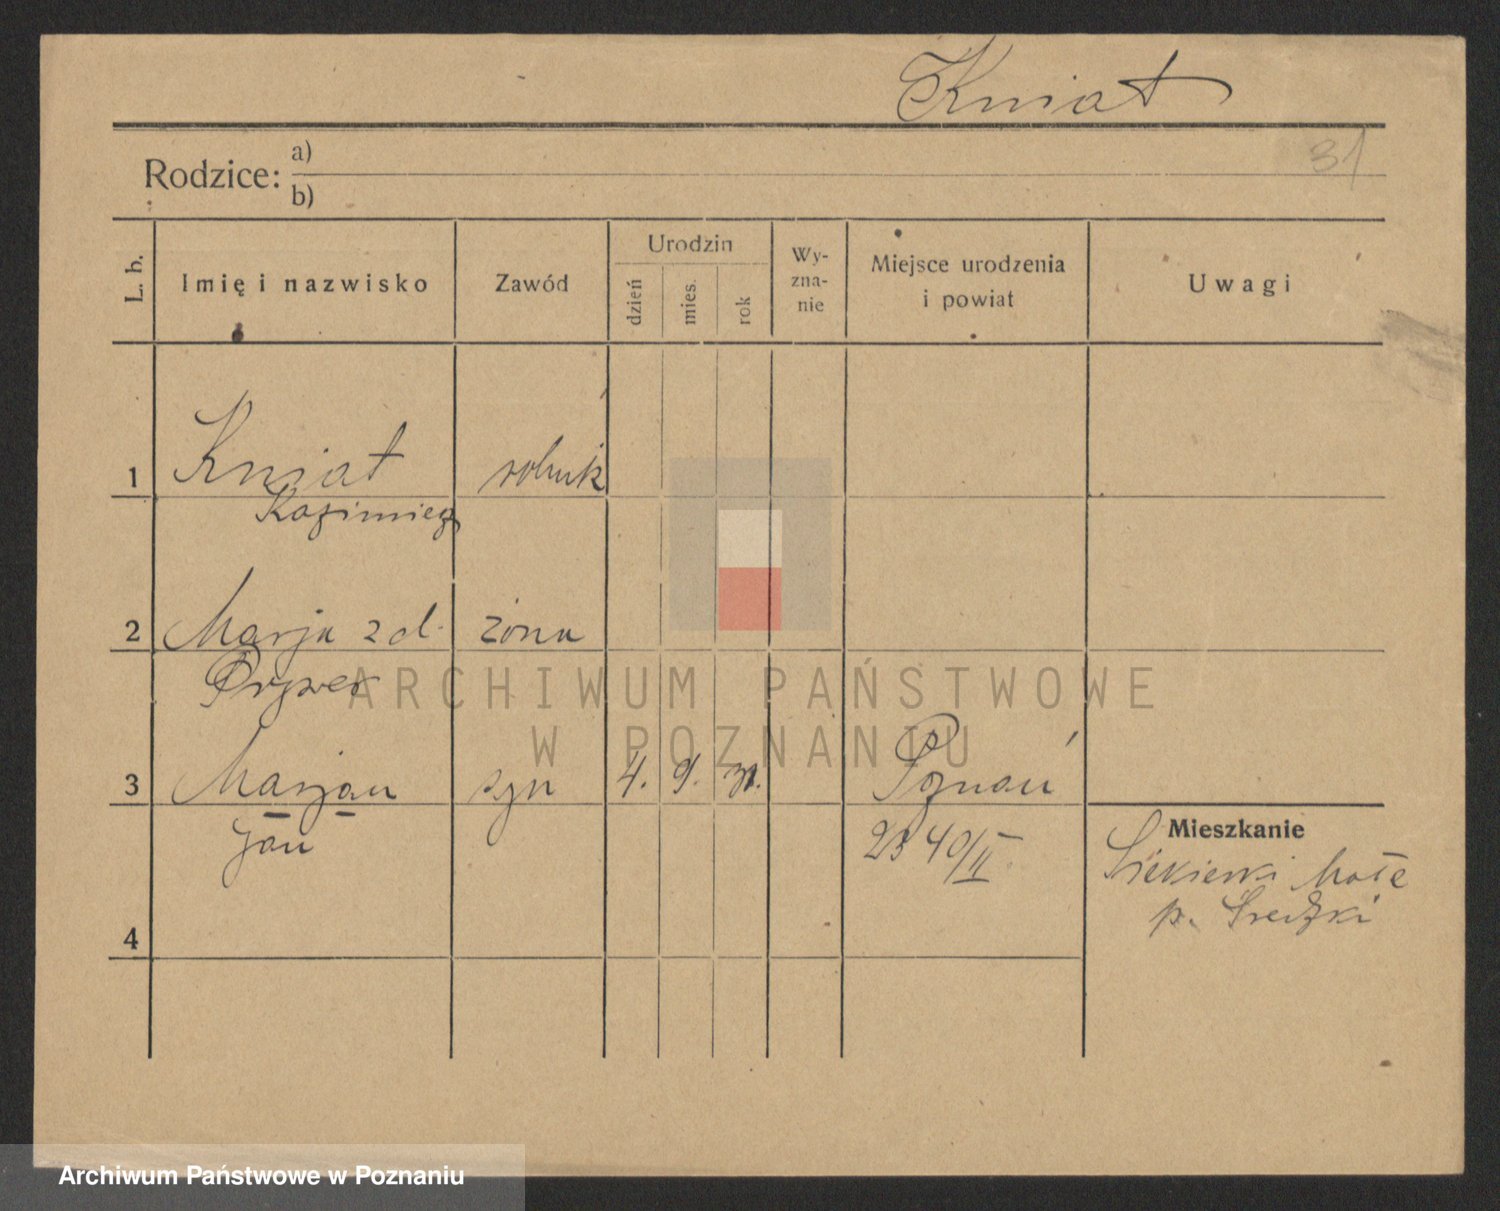 Kniat
31
Rodzice: a)
b)
L. b.
Imię i nazwisko
Zawód
Urodzin
dzień
mies.
rok
Wy-
zna-
nie
Miejsce urodzenia
i powiat
Uwagi
1 Kniat rolnik
Kazimierz
2 Marja z d. żona
3 Marjan syn 4. 9. 31. Poznań
Jan
2340/II
Mieszkanie
Siekierki Małe
p. Średzki
4
ARCHIWUM PAŃSTWOWE
W POZNANIU
Archiwum Państwowe w Poznaniu